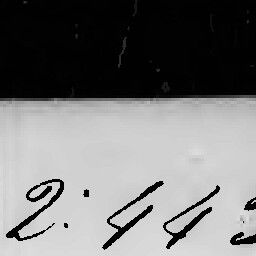 2. 44